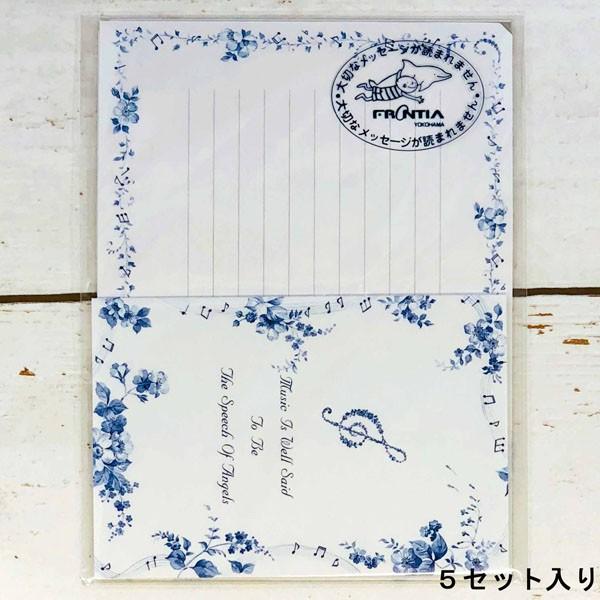 ・大切なメッセージが読まれません・
FRONTIA
YOKOHAMA
・大切なメッセージが読まれません・
Music Is Well Said
To Be
The Speech Of Angels
5セット入り